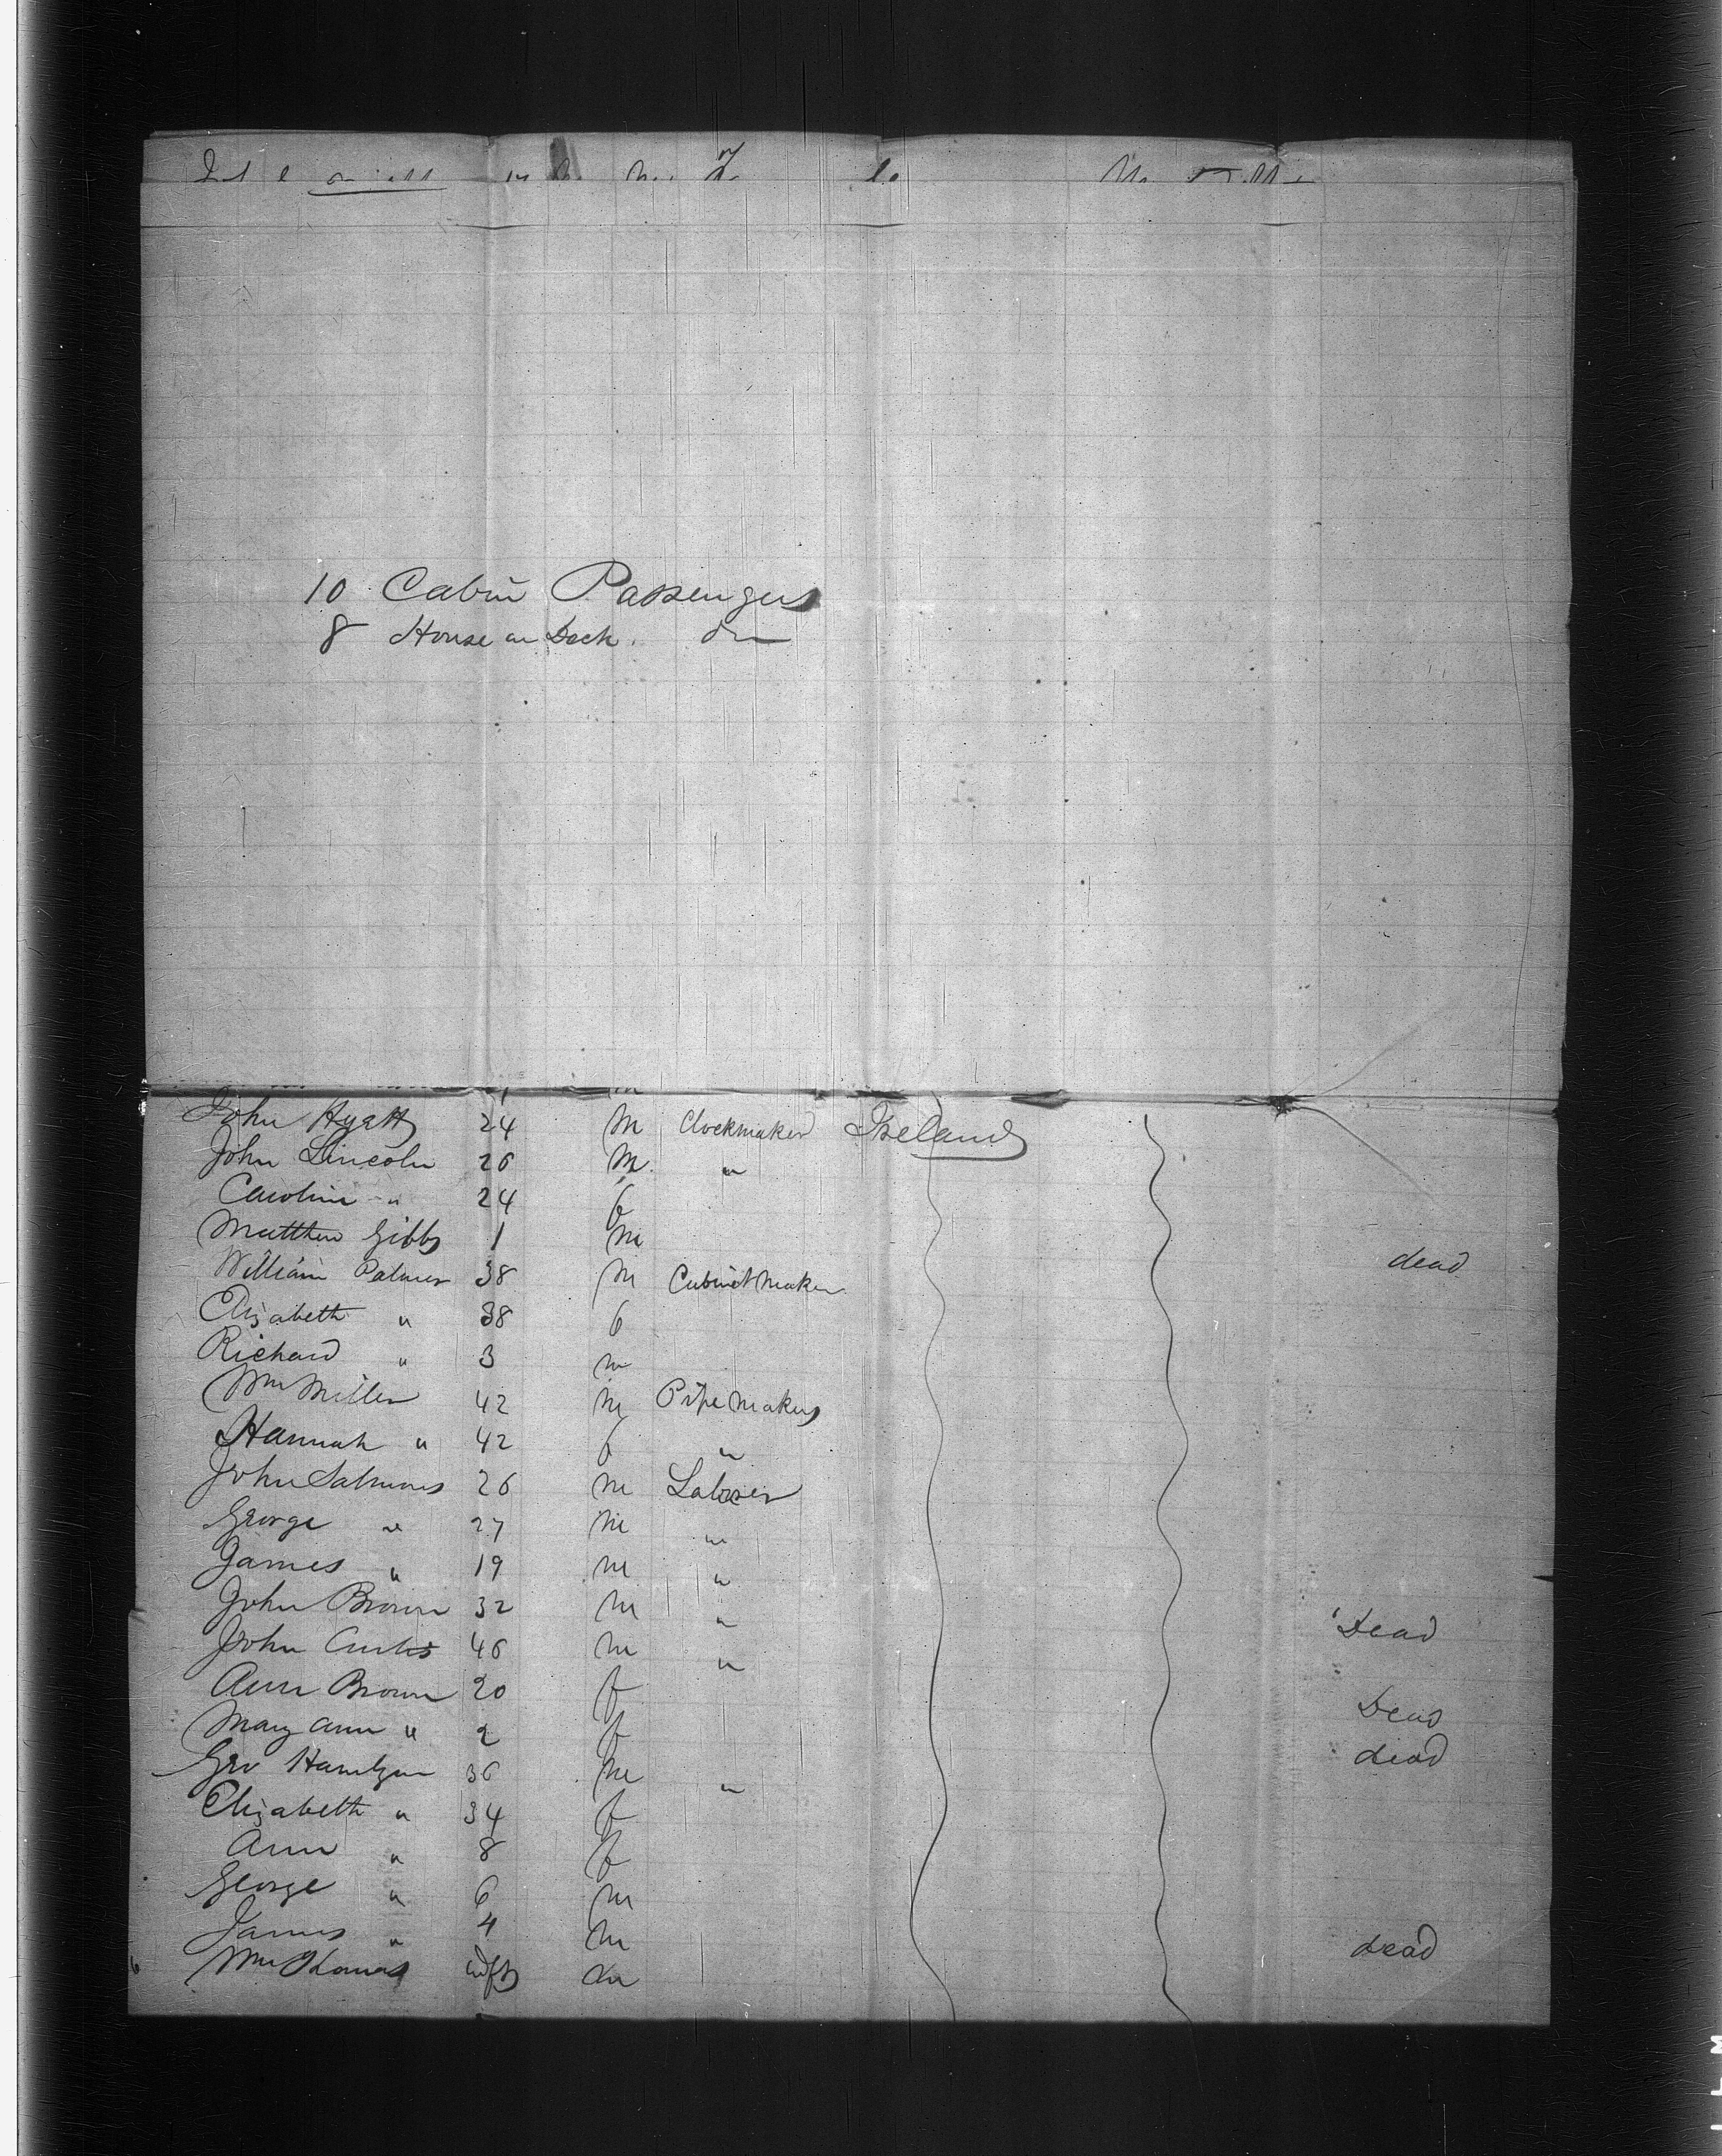 10 Cabin Passengers
8 House on Deck. do
John Hyatt 24 M Clockmaker Ireland
John Lincoln 26 M "
Caroline " 24 f
Matthew Gibbs 1 M dead
William Palmer 38 M Cabinet Maker
Elizabeth " 38 f
Richard " 3 m
Wm Miller 42 M Pipe Maker
Hannah " 42 f "
John Salmons 26 M Laborer
George " 27 M "
James " 19 M "
John Brown 32 M " Dead
John Curtis 46 M "
Ann Brown 20 f Dead
Mary Ann " 2 f dead
Geo 36 M "
Elizabeth " 34 f
Ann " 8 f
George " 6 M
James " 4 M dead
Wm Thomas M